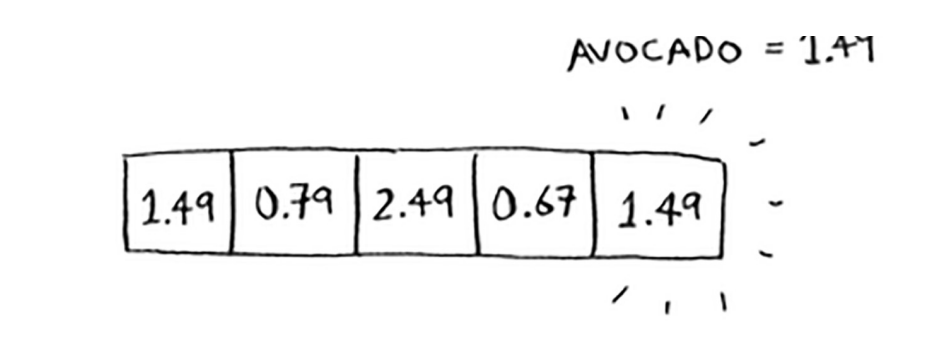 AVOCADO = 1.49
1.49 0.79 2.49 0.67 1.49